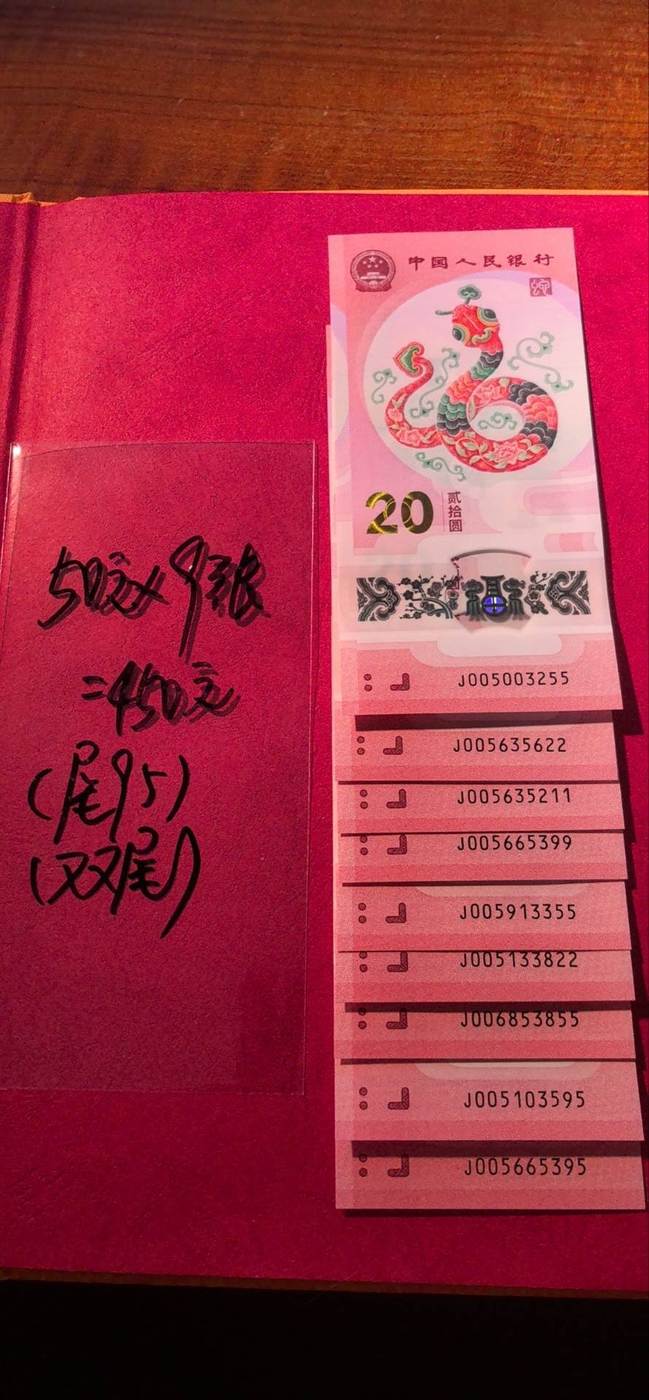 中国人民银行
20
贰拾圆
J005003255
J005635622
J005635211
J005665399
J005913355
J005133822
J006853855
J005103595
J005665395
50元×9张
=450元
(尾95)
(双尾)